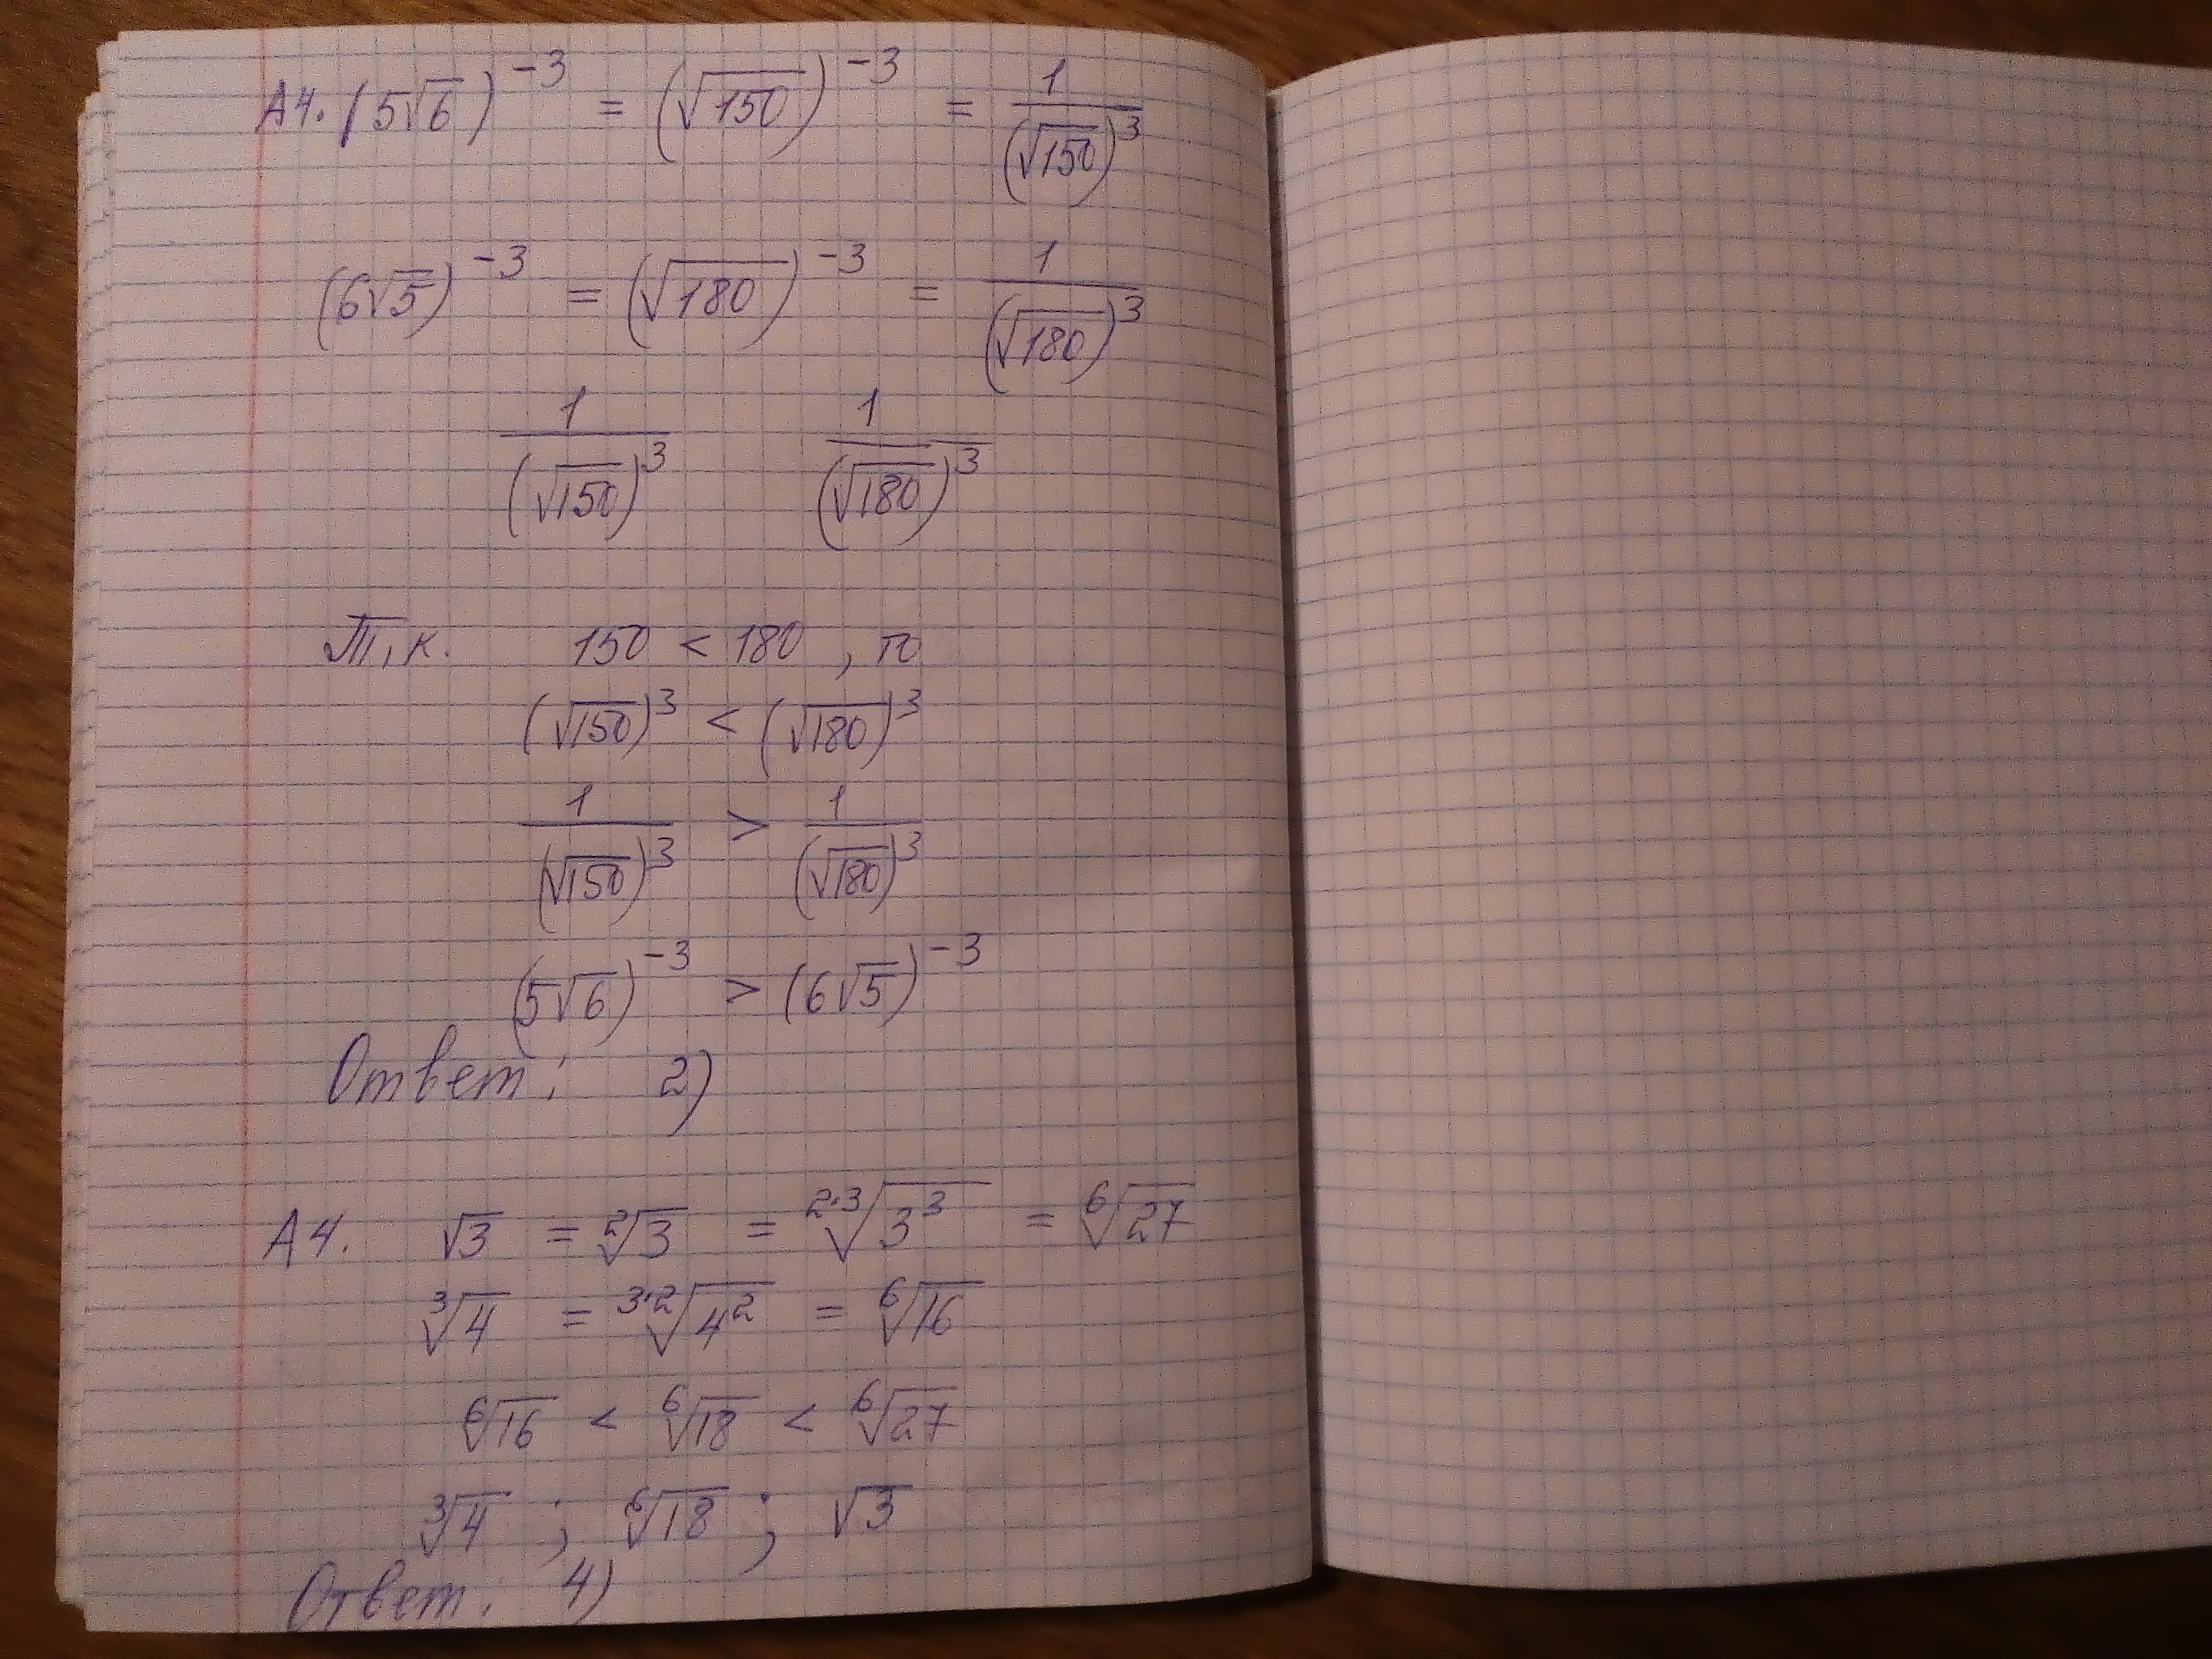 А4. (5√6)⁻³ = (√150)⁻³ = 1/(√150)³
(6√5)⁻³ = (√180)⁻³ = 1/(√180)³
1/(√150)³ 1/(√180)³
Т.к. 150 < 180, то
(√150)³ < (√180)³
1/(√150)³ > 1/(√180)³
(5√6)⁻³ > (6√5)⁻³
Ответ: 2)
А4. √3 = ²√3 = ²·³√3³ = ⁶√27
³√4 = ³·²√4² = ⁶√16
⁶√16 < ⁶√18 < ⁶√27
³√4 ; ⁶√18 ; √3
Ответ: 4)